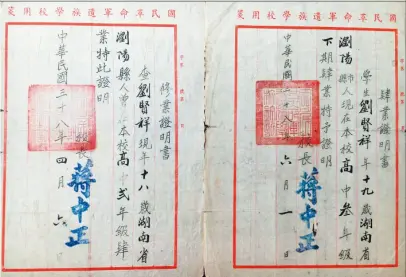 國民革命軍遺族學校用箋
肄業證明書
學生劉賢祥年十九歲湖南省
瀏陽縣人現在本校高中叁年級
下期肄業特予證明
校長 蔣中正
中華民國 十八年六月一日
國民革命軍遺族學校用箋
修業證明書
查劉賢祥現年十八歲湖南省
瀏陽縣人曾 本校高中貳年級肄
業特此證明
校長 蔣中正
中華民國三十八年四月六